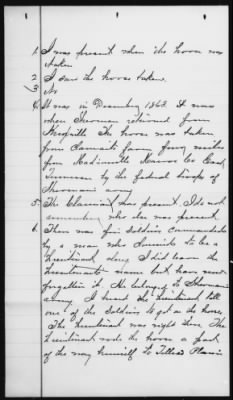 1. I was present when the horse was
taken
2 I saw the horse taken.
3 No
4. It was in December 1863. It was
when Sherman returned from
Knoxville The horse was taken
from Claimants farm four miles
from Madisonville Monroe Co East
Tennessee by the federal troops of
Sherman's
5. The Claimant was present. I do not
remember who else was present
6. There was five Soldiers commanded
by a man who claimed to be a
Lieutenant along I did learn the
Lieutenants name but have now
forgotten it. He belonged to Sherman's
army. I heard the Lieutenant tell
one of the Soldiers to get on the horse.
The Lieutenant was right there The
Lieutenant rode the horse a part
of the way himself to Tellico Plains